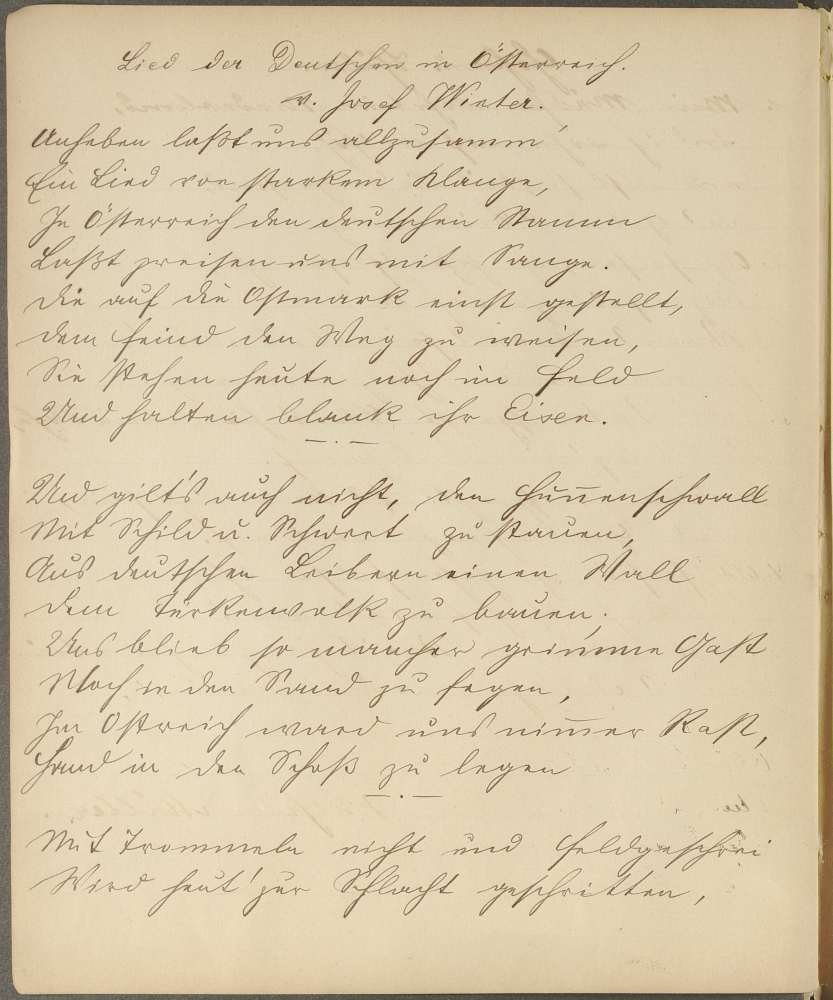 Lied der Deutschen in Österreich.
v. Josef Winter.
Anheben laßt uns allzusamm'
Ein Lied von starkem Klange,
In Österreich den deutschen Stamm
Laßt preisen uns mit Sange.
Die auf die Ostmark einst gestellt,
Dem Feind den Weg zu weisen,
Sie stehen heute noch im Feld
Und halten blank ihr Eisen.
Und gilt's auch nicht, den Hun̄enschwall
Mit Schild u. Schwert zu stauen,
Aus deutschen Leibern einen Wall
Dem Türkenvolk zu bauen;
Uns blieb so mancher grimme Gast
Noch in den Sand zu fegen,
Im Ostreich ward uns nim̄er Rast,
Hand in den Schoß zu legen
Mit Trommeln nicht und Feldgeschrei
Wird heut' zur Schlacht geschritten,